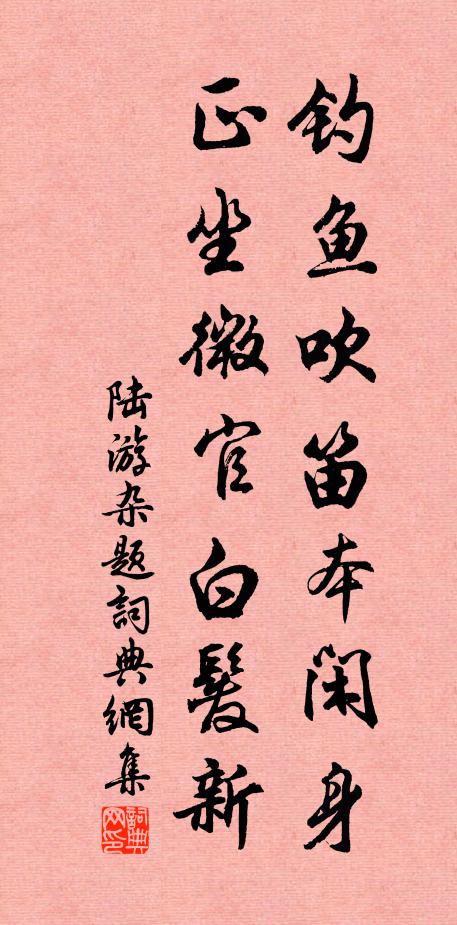 钓鱼吹笛本闲身
正坐微官白髮新
陆游杂题詞典網集
詞典网印